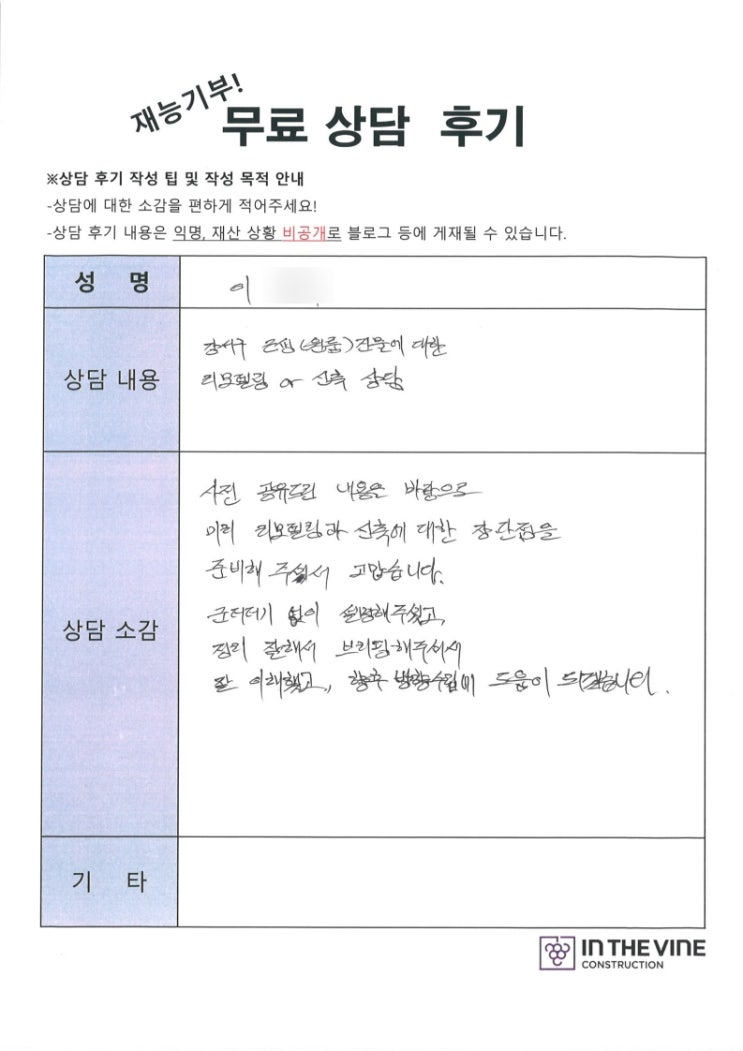 재능기부!
무료 상담 후기
※상담 후기 작성 팁 및 작성 목적 안내
-상담에 대한 소감을 편하게 적어주세요!
-상담 후기 내용은 익명, 재산 상황 비공개로 블로그 등에 게재될 수 있습니다.
성 명
이
상담 내용
강서구 (원룸)건물에 대한
리모델링 or 신축 상담
상담 소감
사전 공유드린 내용을 바탕으로
미리 리모델링과 신축에 대한 장단점을
준비해 주셔서 고맙습니다.
군더더기 없이 설명해주셨고,
정리 잘해서 브리핑해주셔서
잘 이해했고, 향후 방향수립에 도움이 되겠습니다.
기 타
IN THE VINE
CONSTRUCTION